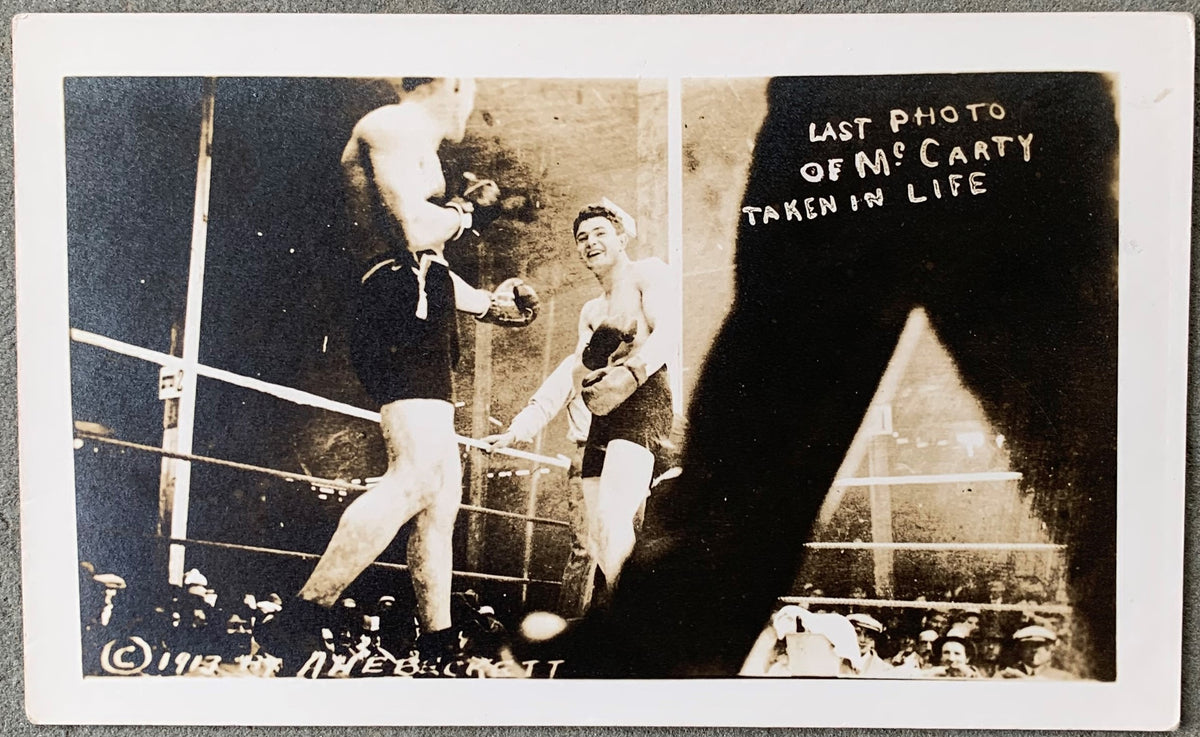 LAST PHOTO
OF Mc CARTY
TAKEN IN LIFE
© 1913 BY A H E BECKETT